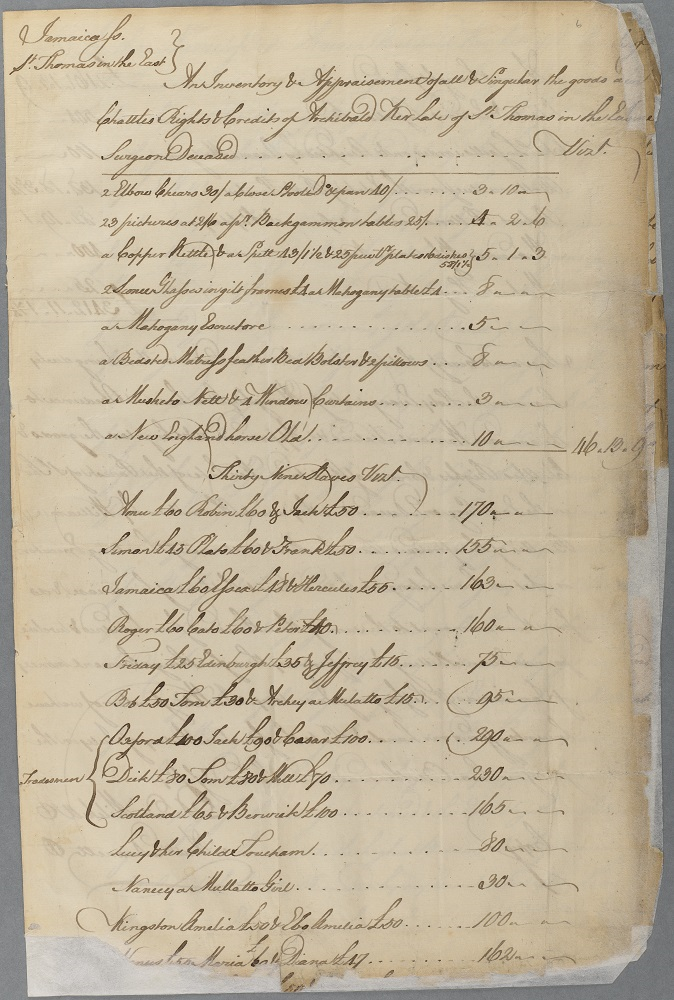 Jamaica ss.
St. Thomas in the East }
An Inventory & Appraisement of all & Singular the goods
Chattles Rights & Credits of Archibald Ker Late of St. Thomas in the
Surgeon Deceased . . . . . . Vizt.
2 Elbow Chears 30/ a Close Stool & pan 40/ . . . . . . 3 " 10 "
23 pictures at 2/6 a pr. Backgammon tables 25/. . . . 4 " 2 " 6
a Copper Kettle & a Spitt 43/1½ & 25 pewtr. plates 6 dishes 58/1½ } 5 " 1 " 3
2 Sconce Glasses in gilt frames £4 a Mahogany table £4 . . . 8 " "
a Mahogany Escrutore . . . . . . 5 " "
a Bedsted Matrass feather Bed Bolster & 2 pillows . . . . 8 " "
a Musketo Nett & 4 Window Curtains . . . . . . 3 " "
a New England horse Old . . . . . . 10 " " 46 " 13 " 9
Thirty Nine Slaves Vizt.
£60 Robin £60 & Jack £50 . . . . . . 170 " "
Simon £45 Plato £60 & Frank £50 . . . . . . 155 " "
Jamaica £60 Essex £48 & Hercules £55 . . . . . . 163 " "
Roger £60 Cato £60 & Peter £40 . . . . . . 160 " "
Friday £25 Edinburgh £35 & Jeffrey £15 . . . . . . 75 " "
Bob £50 Tom £30 & Archey a Mulatto £15 . . . 95 " "
Tradesmen { Oxford £100 Jack £90 & Cæsar £100 . . . . . . 290 " "
Dick £80 Tom £80 & Will £70 . . . . . . 230 " "
Scotland £65 & Berwick £100 . . . . . . 165 " "
Lucy & her Child . . . . . . 80 " "
Nancy a Mullatto Girl . . . . . . 30 " "
Kingston Amelia £50 & Ebo Amelia £50 . . . . . . 100 " "
Maria £60 & Diana £47 . . . . . . 162 " "